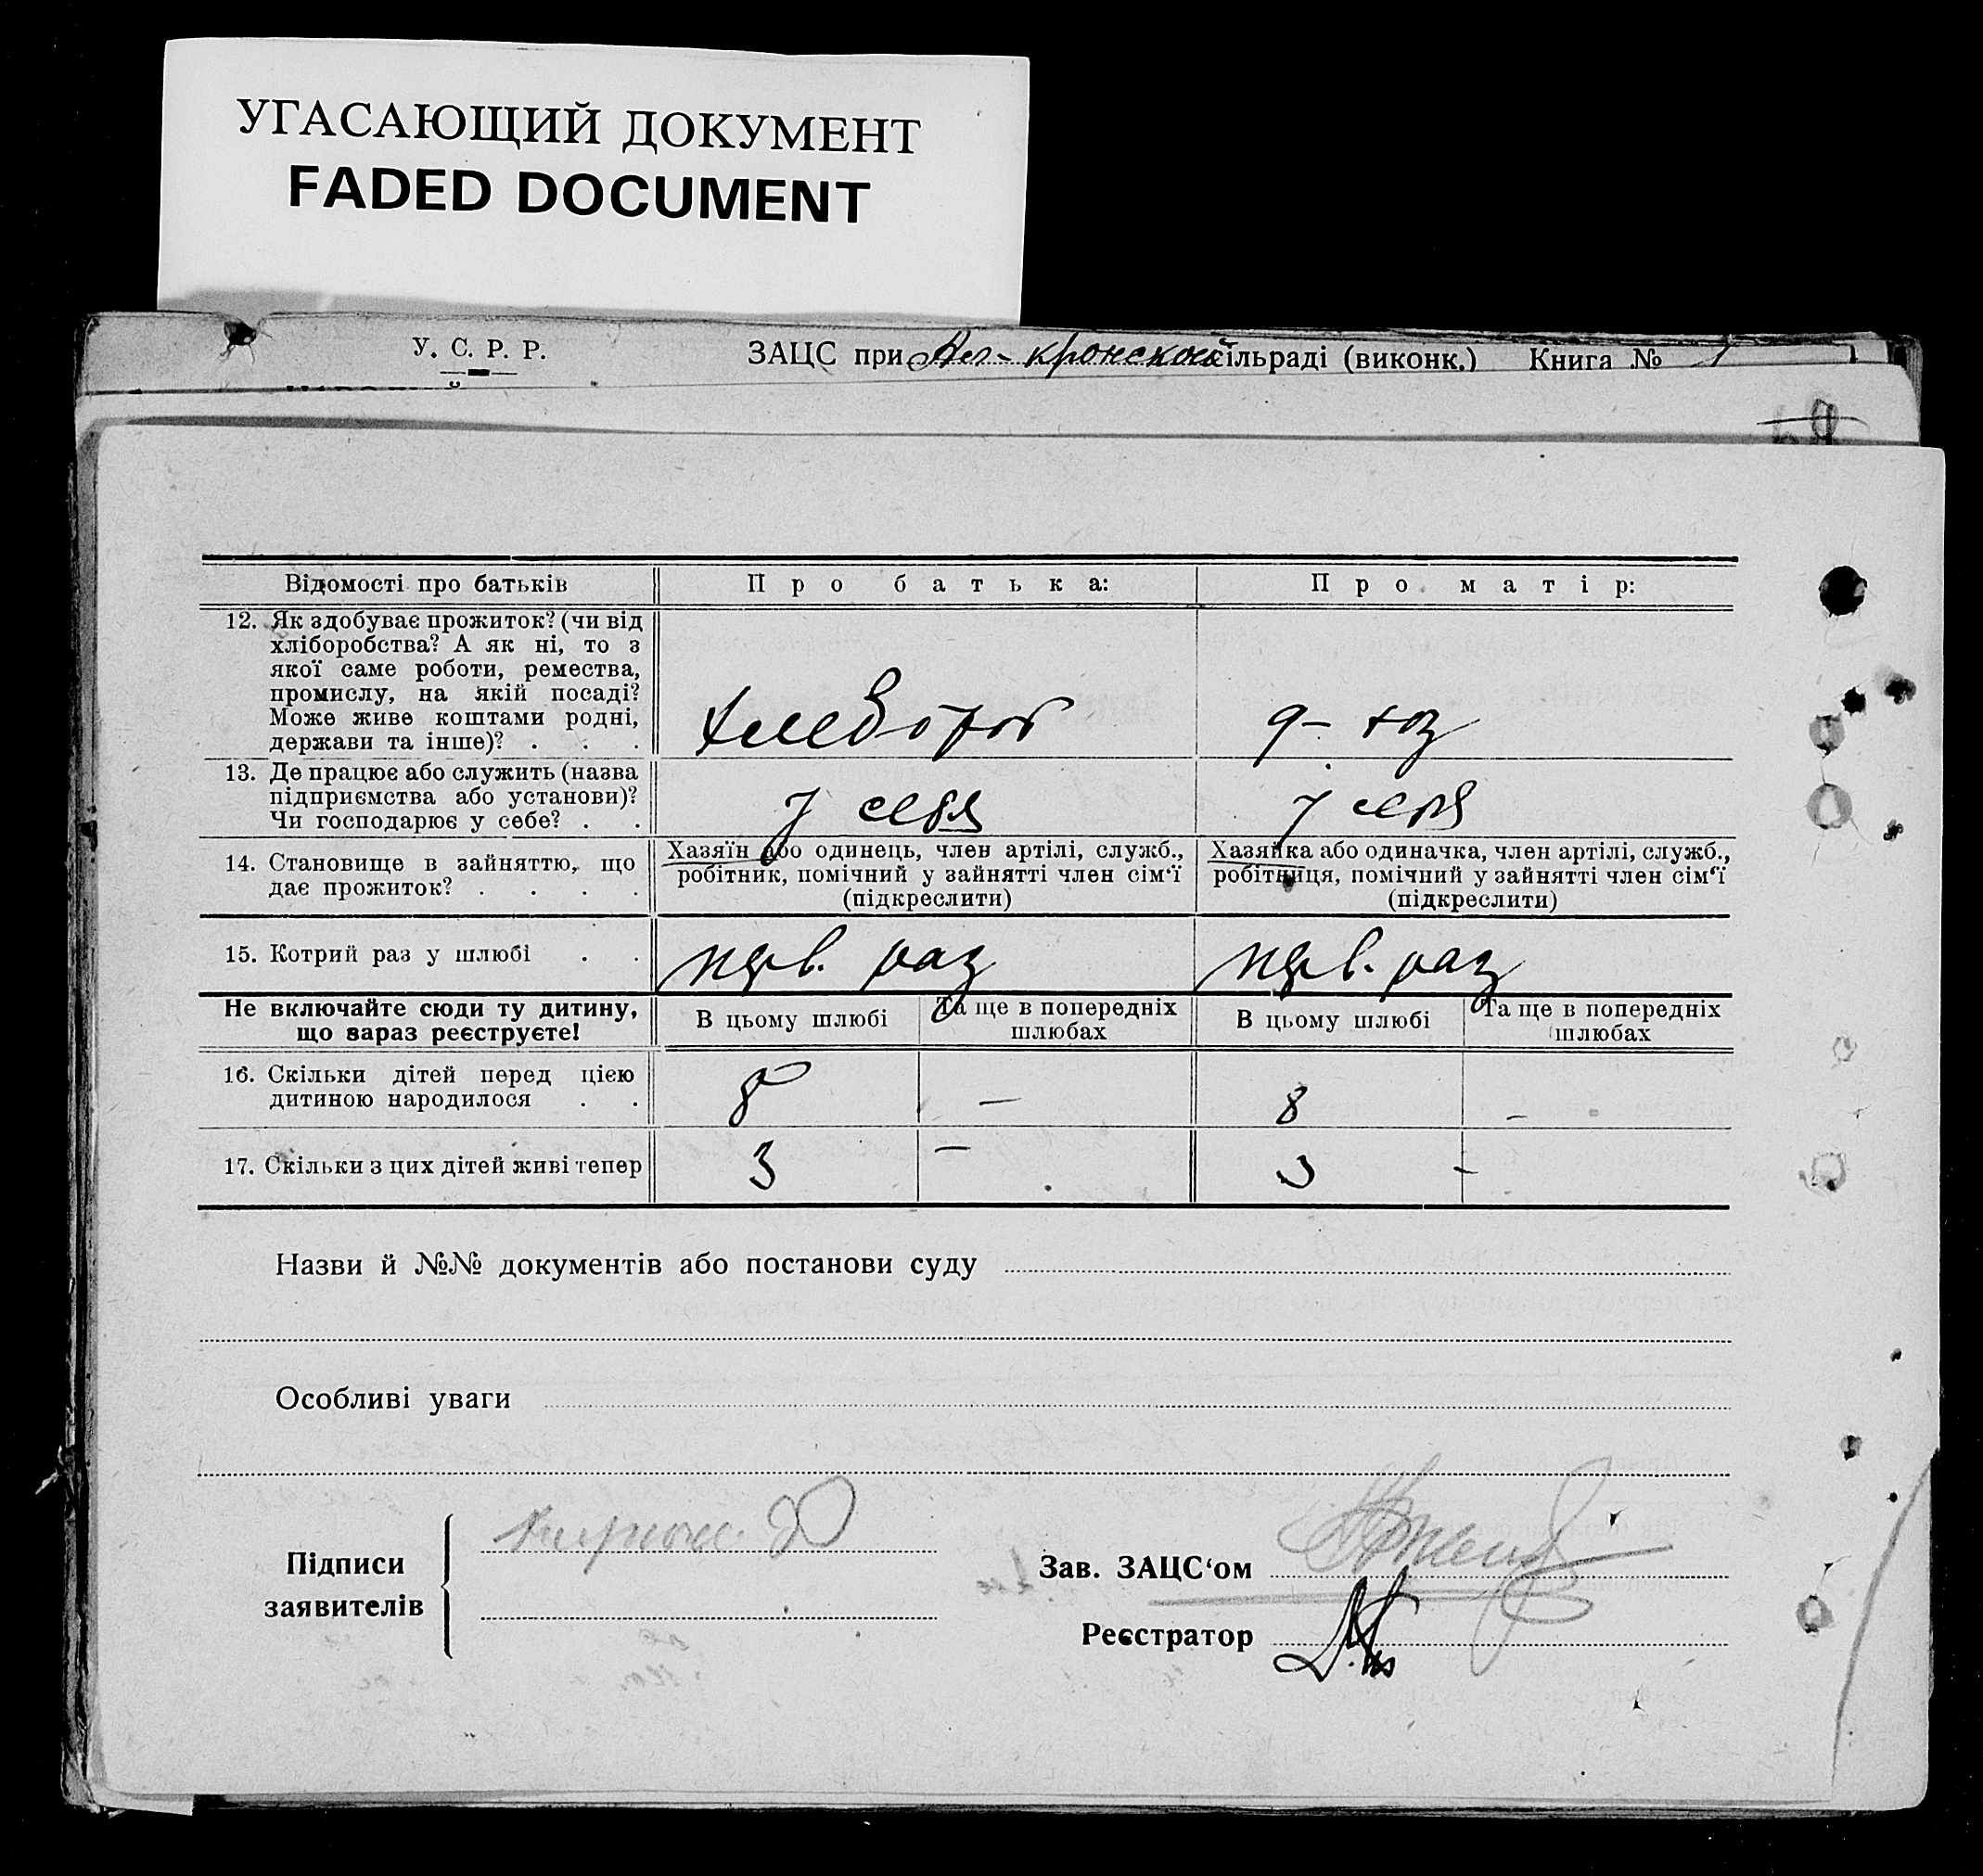 УГАСАЮЩИЙ ДОКУМЕНТ
FADED DOCUMENT
У. С. Р. Р.
ЗАЦС при кронской сільраді (виконк.) Книга №
Відомості про батьків
Про батька:
Про матір:
12. Як здобуває прожиток? (чи від
хліборобства? А як ні, то з
якої саме роботи, ремества,
промислу, на якій посаді?
Може живе коштами родні,
держави та інше)? . . .
хлебороб
д-хоз
13. Де працює або служить (назва
підприємства або установи)?
Чи господарює у себе? . .
у себя
у себя
14. Становище в зайняттю, що
дає прожиток? . . . .
Хазяїн або одинець, член артілі, служб.,
робітник, помічний у зайнятті член сім'ї
(підкреслити)
Хазяйка або одиначка, член артілі, служб.,
робітниця, помічний у зайнятті член сім'ї
(підкреслити)
15. Котрий раз у шлюбі . .
перв. раз
перв. раз
Не включайте сюди ту дитину,
що зараз реєструєте!
В цьому шлюбі
Та ще в попередніх
шлюбах
В цьому шлюбі
Та ще в попередніх
шлюбах
16. Скільки дітей перед цією
дитиною народилося . .
8
—
8
–
17. Скільки з цих дітей живі тепер
3
—
3
–
Назви й №№ документів або постанови суду
Особливі уваги
Підписи
заявителів
Зав. ЗАЦС'ом
Реєстратор